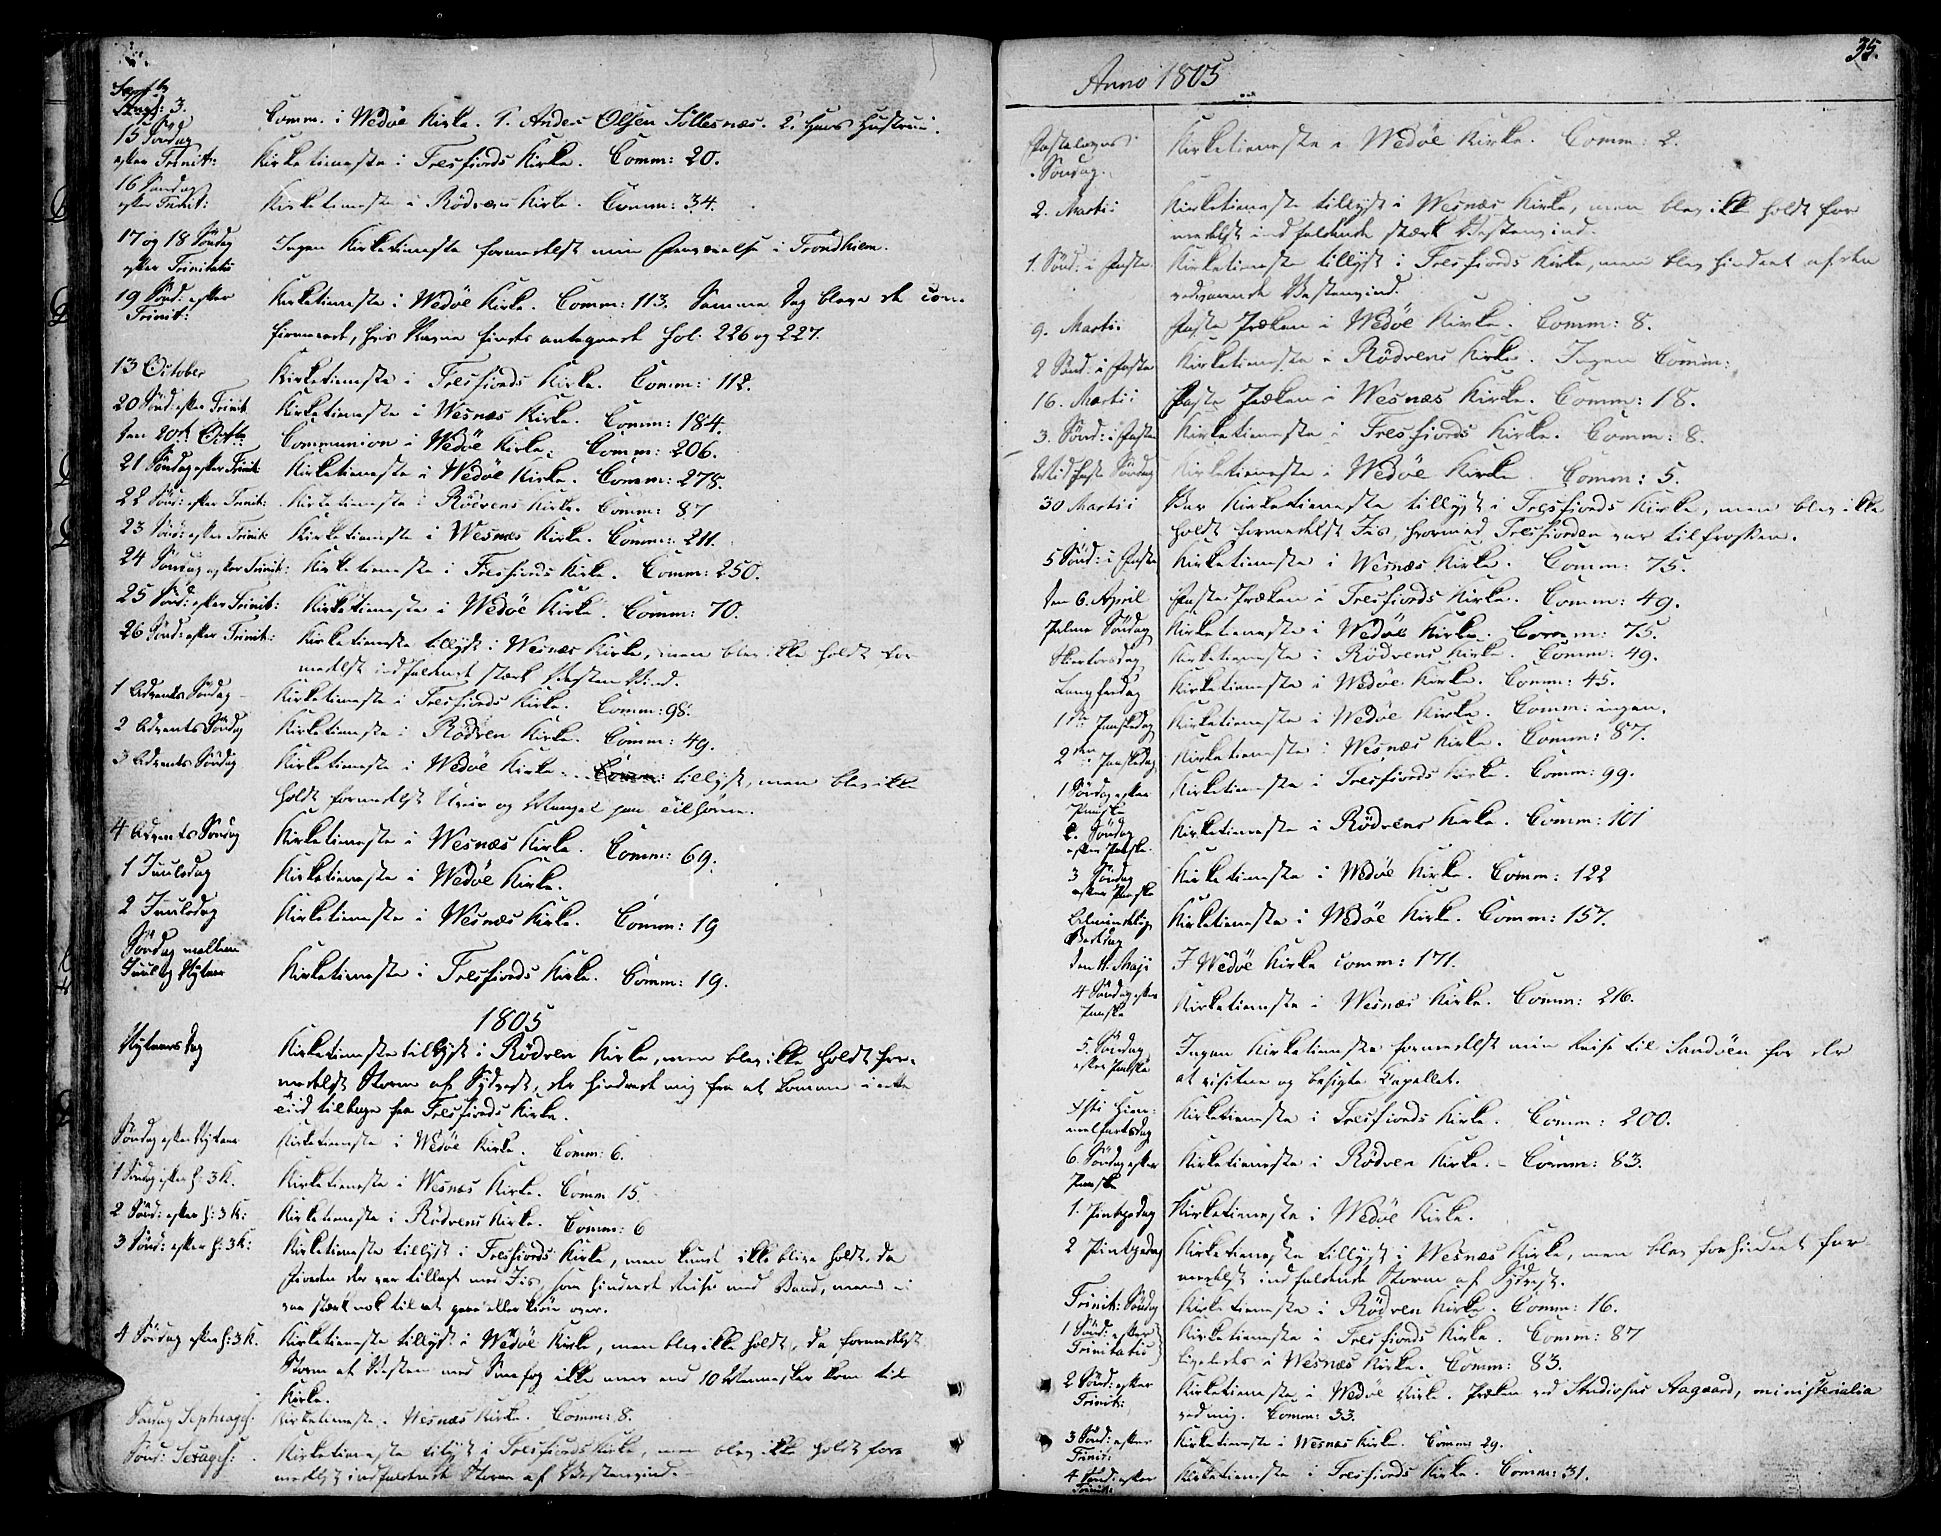 Septb
Aug: 3.
Comm. i Wedöe Kirke. 1. Anders Olsen Sollesnæs. 2. Hans Hustrue.
15 Söndag
efter Trinit: Kirketieneste i Tresfiords Kirke. Comm: 20.
16 Söndag
efter Trinit: Kirketieneste i Rödvens Kirke. Comm: 34.
17 og 18 Söndag
efter Trinitatis Ingen Kirketieneste formedelst min Fraværelse i Trondhiem.
19 Sönd: efter
Trinit: Kirketieneste i Wedöe Kirke. Comm: 113. Samme Dag bleve de con-
firmeret, hvis Navne findes antegnet Fol. 226 og 227.
13 October Kirketieneste i Tresfiords Kirke. Comm: 112.
20 Sönd: efter Trinit Kirketieneste i Wesnæs Kirke. Comm: 184.
den 20de Octb: Communion i Wedöe Kirke. Comm: 206.
21 Söndag efter Trinit Kirketieneste i Wedöe Kirke. Comm: 278.
22 Sönd: efter Trinit: Kirketieneste i Rödvens Kirke. Comm: 87
23 Sönd: efter Trinit: Kirketieneste i Wesnæs Kirke. Comm: 211.
24 Söndag efter Trinit: Kirketieneste i Tresfiords Kirke. Comm: 250.
25 Sönd: efter Trinit: Kirketieneste i Wedöe Kirke. Comm: 70.
26 Sönd: efter Trinit: Kirketieneste tillyst i Wesnæs Kirke, men blev ikke holdt for
medelst indfaldende stærk Vesten Vind.
1 Advents Söndag Kirketieneste i Tresfiords Kirke. Comm: 98.
2 Advents Söndag Kirketieneste i Rödven Kirke. Comm: 49.
3 Advents Söndag Kirketieneste i Wedöe Kirke. Comm: tillyst, men blev ikke
holdt formedelst Uveir og Mangel paa Tilhörere.
4 Advents Söndag Kirketieneste i Wesnæs Kirke. Comm: 69.
1 Juuledag Kirketieneste i Wedöe Kirke.
2 Juuledag Kirketieneste i Wesnæs Kirke. Comm: 19
Söndag mellem
Juul og Nytaar Kirketieneste i Tresfiords Kirke. Comm: 19.
1805
Nytaarsdag Kirketieneste tillyst i Rödven Kirke, men blev ikke holdt for-
medelst Storm af Sydvest, der hindrede mig fra at komme i rette
Tiid tilbage fra Tresfiords Kirke.
Söndag efter Nytaar Kirketieneste i Wedöe Kirke. Comm: 6.
1 Söndag efter H: 3 K. Kirketieneste i Wesnæs Kirke. Comm 15.
2 Sönd: efter H: 3 K: Kirketieneste i Rödvens Kirke. Comm: 6
3 Sönd: efter H: 3 K: Kirketieneste tillyst i Tresfiords Kirke, men kunde ikke blive holdt, da
Fiorden der var tillagt med Iis, som hindrede Reise med Baad, men ei
var stærk nok til at gaae eller kiöre over.
4 Söndag efter H: 3 K. Kirketieneste tillyst i Wedöe Kirke, men blev ikke holdt, da formedelst
Storm af Vesten med Sneefog ikke mere end 10 Mennesker kom til
Kirke.
Söndag Septuages: Kirketieneste i Wesnæs Kirke. Comm: 8.
Sönd: Sexages: Kirketieneste tillyst i Tresfiords Kirke, men blev ikke holdt for-
medelst indfaldende Storm af Vestenvind.
35.
Anno 1805
Fastelavns
Söndag. Kirketieneste i Wedöe Kirke. Comm: 2.
2. Martii Kirketieneste tillyst i Wesnæs Kirke, men blev ikke holdt for
medelst indfaldende stærk Vestenvind.
1. Sönd: i Faste Kirketieneste tillyst i Tresfiords Kirke, men blev hindret af den
vedvarende Vestenvind.
9. Martii Faste Præken i Wedöe Kirke. Comm: 8.
2 Sönd: i Faste Kirketieneste i Rödvens Kirke. Ingen Comm:
16. Martii Faste Præken i Wesnæs Kirke. Comm: 18.
3. Sönd: i Faste Kirketieneste i Tresfiords Kirke. Comm: 8.
Midfaste Söndag Kirketieneste i Wedöe Kirke. Comm: 5.
30 Martii Var Kirketieneste tillyst i Tresfiords Kirke, men blev ikke
holdt formedelst Iis, hvormed Tresfiorden var tilfrossen.
5 Sönd: i Faste Kirketieneste i Wesnæs Kirke. Comm: 75.
den 6. April Faste Præken i Tresfiords Kirke. Comm: 49.
Palme Söndag Kirketieneste i Wedöe Kirke. Comm: 75.
Skiertorsdag Kirketieneste i Rödvens Kirke. Comm: 49.
Langfredag Kirketieneste i Wedöe Kirke. Comm: 45.
1ste Paaskedag Kirketieneste i Wedöe Kirke. Comm: ingen.
2den Paaskedag Kirketieneste i Wesnæs Kirke. Comm: 87.
1 Söndag efter
Paaske Kirketieneste i Tresfiords Kirke. Comm: 99.
2. Söndag
efter Paaske. Kirketieneste i Rödvens Kirke. Comm: 101
3 Söndag
efter Paaske Kirketieneste i Wedöe Kirke. Comm: 122
Almindelig
Bededag Kirketieneste i Wedöe Kirke. Comm: 157.
den 11. Maji I Wedöe Kirke comm: 171.
4 Söndag efter
Paaske Kirketieneste i Wesnæs Kirke. Comm: 216.
5. Söndag
efter Paaske Ingen Kirketieneste formedelst min Reise til Sandöen for der
at visitere og besigte Capellet.
Xsti Him-
melfartsdag Kirketieneste i Tresfiords Kirke. Comm: 200.
6. Söndag efter
Paaske Kirketieneste i Rödven Kirke. Comm: 83.
1. Pintzedag Kirketieneste i Wedöe Kirke.
2 Pintzedag Kirketieneste tillyst i Wesnæs Kirke, men blev forhindret for
medelst indfaldende Storm af Sydvest.
Trinit: Söndag Kirketieneste i Rödven Kirke. Comm: 16.
1 Sönd: efter
Trinitatis Kirketieneste i Tresfiords Kirke. Comm: 87
ligeledes i Wesnæs Kirke. Comm: 83.
2 Sönd: efter
Trinit: Kirketieneste i Wedöe Kirke. Præken ved Studiosus Aagaard, ministerialia
ved mig. Comm: 33.
3 Sönd: efter
Trinit: Kirketieneste i Wesnæs Kirke. Comm: 29.
4 Sönd: efter
Trinit: Kirketieneste i Tresfiords Kirke. Comm: 31.